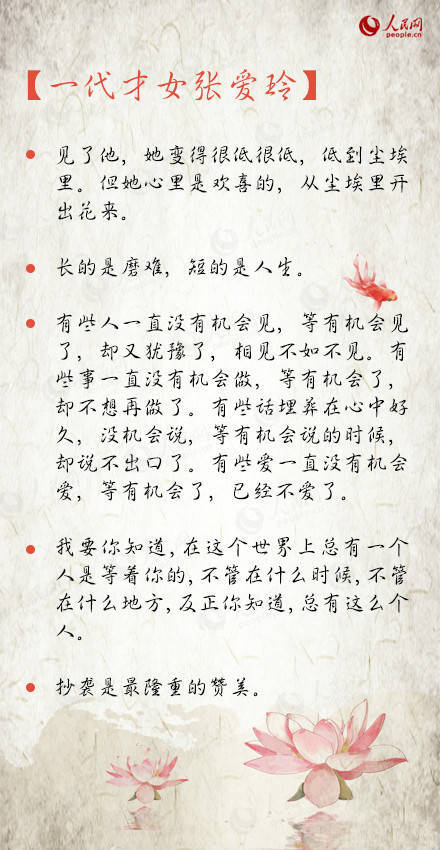 人民网
people.cn
【一代才女张爱玲】
见了他，她变得很低很低，低到尘埃
里。但她心里是欢喜的，从尘埃里开
出花来。
长的是磨难，短的是人生。
有些人一直没有机会见，等有机会见
了，却又犹豫了，相见不如不见。有
些事一直没有机会做，等有机会了，
却不想再做了。有些话埋葬在心中好
久，没机会说，等有机会说的时候，
却说不出口了。有些爱一直没有机会
爱，等有机会了，已经不爱了。
我要你知道,在这个世界上总有一个
人是等着你的,不管在什么时候,不管
在什么地方,反正你知道,总有这么个
人。
抄袭是最隆重的赞美。